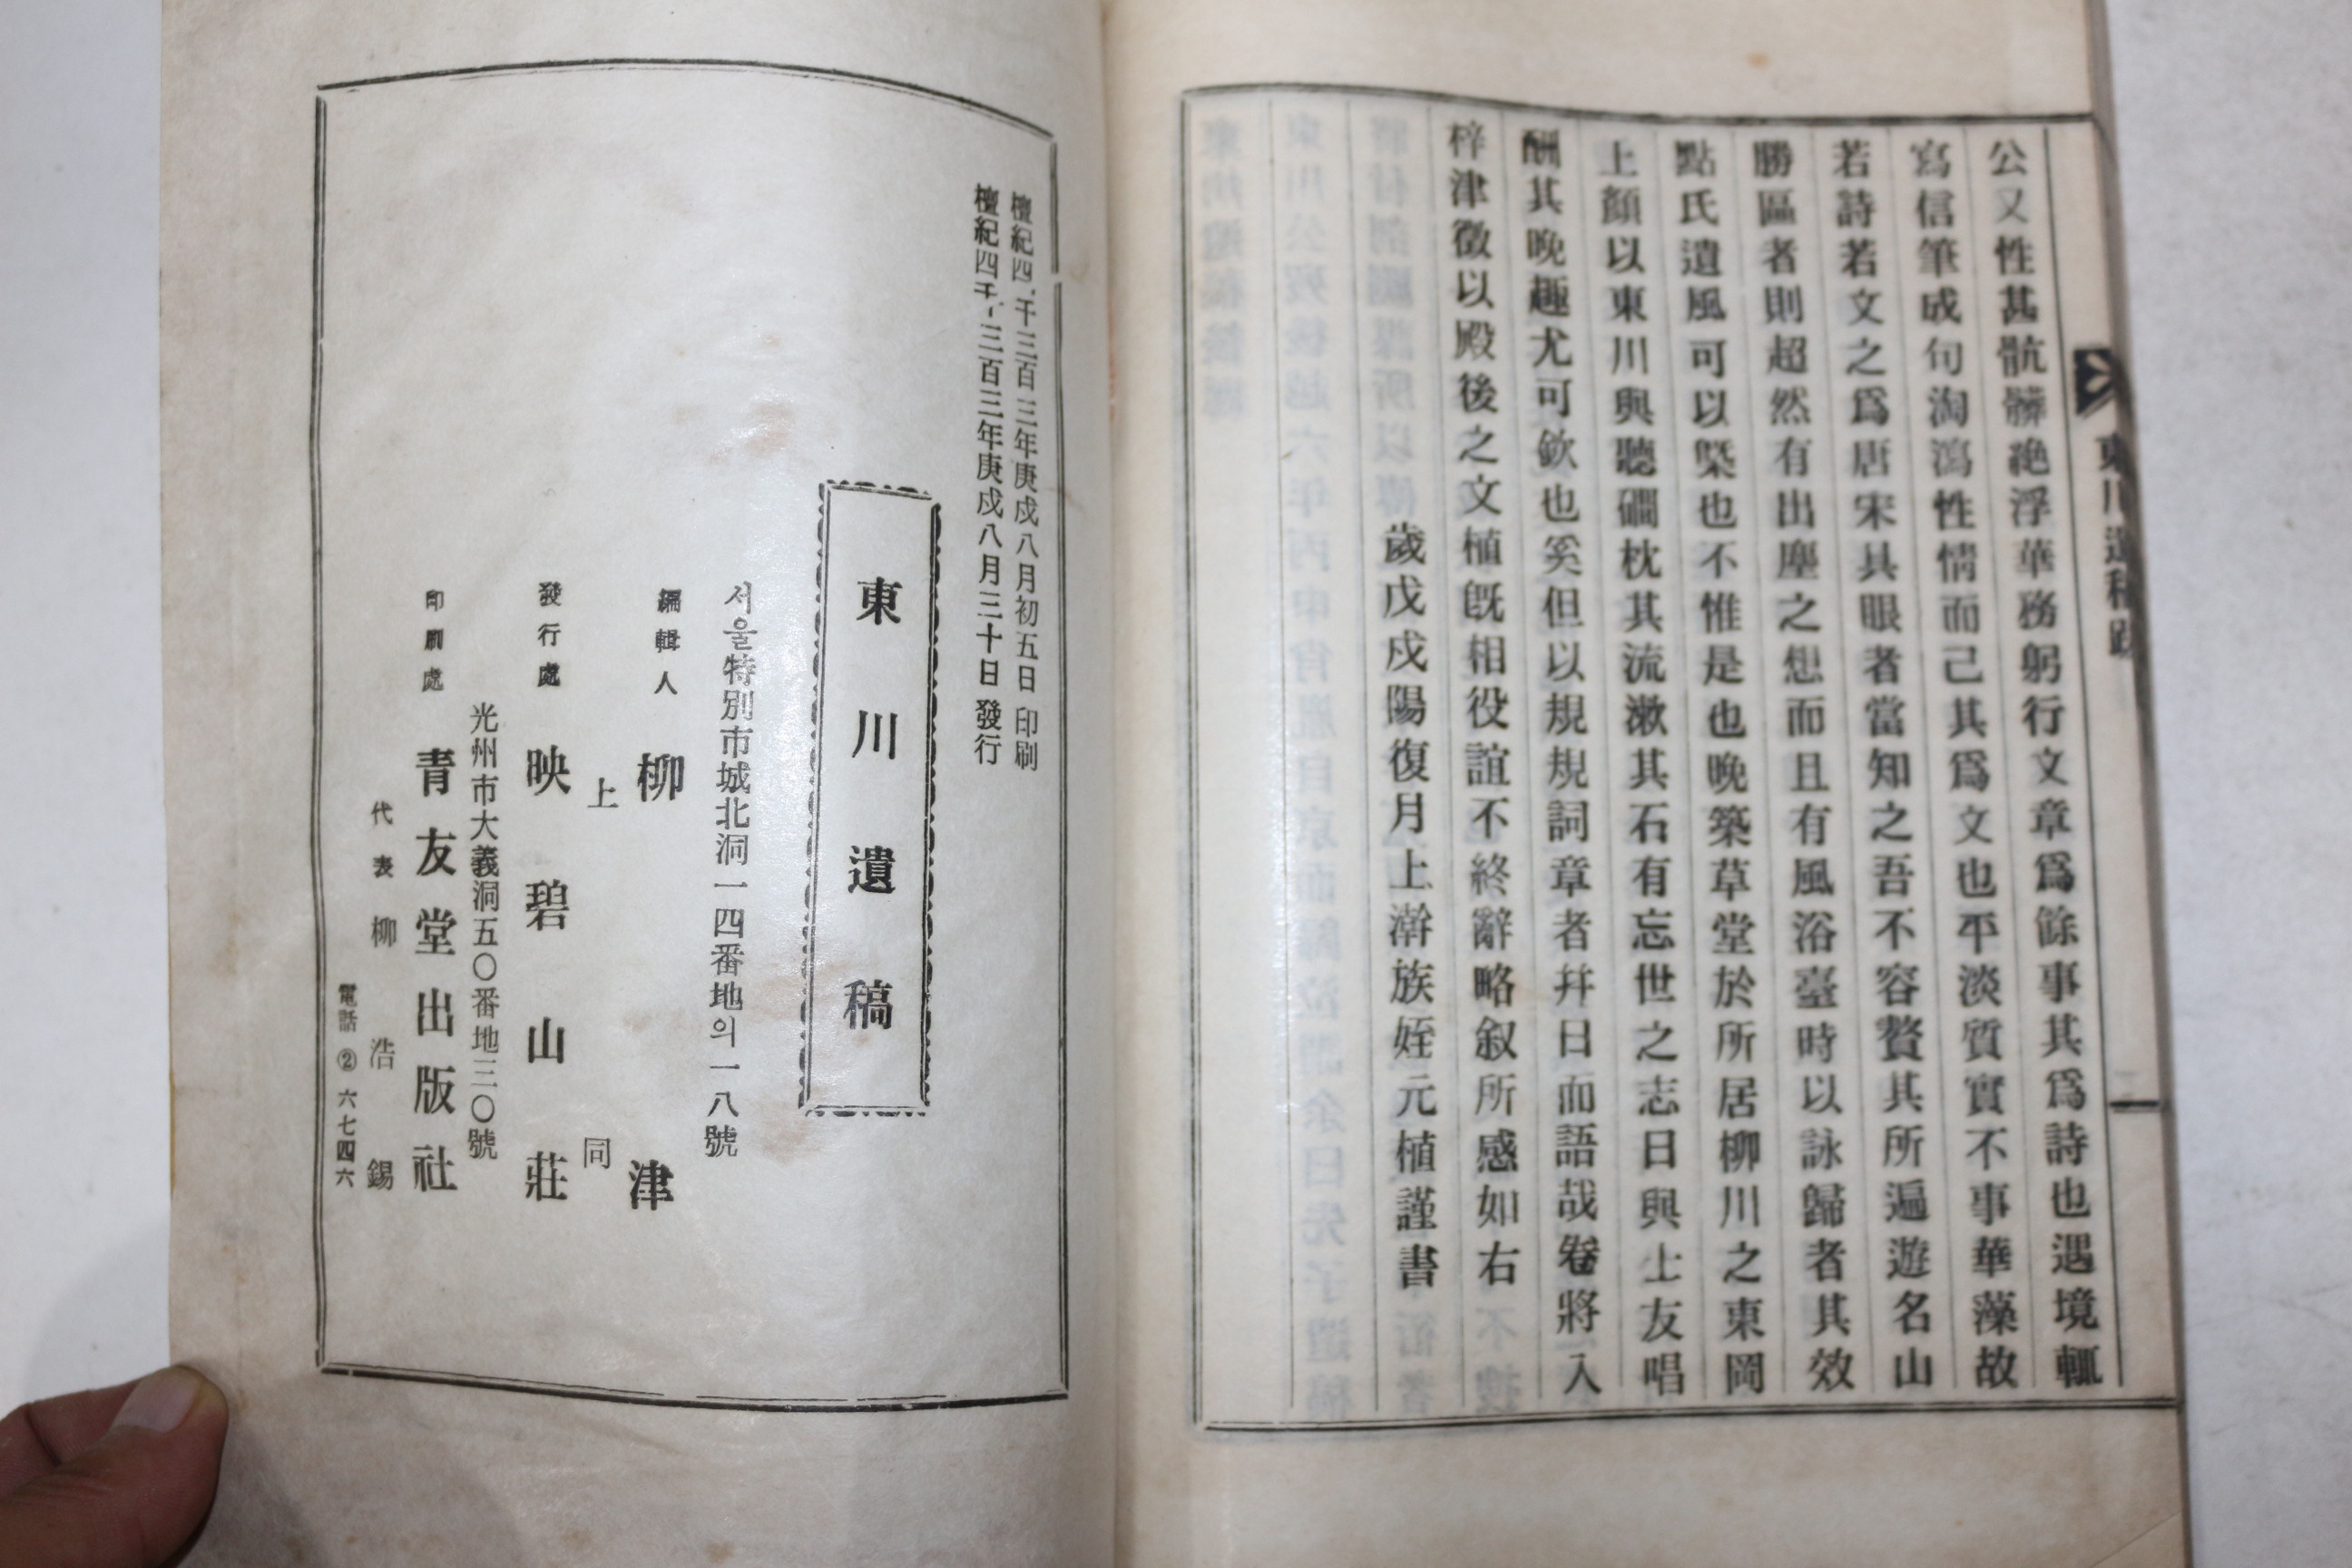 公又性甚骯髒絶浮華務躬行文章爲餘事其爲詩也遇境輒
寫信筆成句淘瀉性情而己其爲文也平淡質實不事華藻故
若詩若文之爲唐宋具眼者當知之吾不容贅其所遍遊名山
勝區者則超然有出塵之想而且有風浴臺時以詠歸者其效
點氏遺風可以槩也不惟是也晩築草堂於所居柳川之東岡
上顏以東川與聽磵枕其流漱其石有忘世之志日與士友唱
酬其晩趣尤可欽也奚但以規規詞章者幷日而語哉卷將入
梓津徵以殿後之文植旣相役誼不終辭略叙所感如右
歲戊戌陽復月上澣族姪元植謹書
東川遺稿跋
二
檀紀四千三百三年庚戌八月初五日 印刷
檀紀四千三百三年庚戌八月三十日 發行
東川遺稿
서울特別市城北洞一四番地의一八號
編輯人 柳津
上同
發行處 映碧山莊
光州市大義洞五〇番地三〇號
印刷處 青友堂出版社
代表 柳浩錫
電話 ② 六七四六